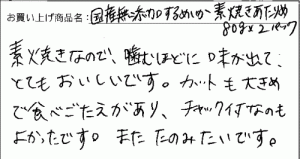 お買い上げ商品名：国産無添加するめいか 素焼きあたりめ
80g×2パック
素焼きなので、噛むほどに味が出て、
とてもおいしいです。カットも大きめ
で食べごたえがあり、チャック付なのも
よかったです。また たのみたいです。